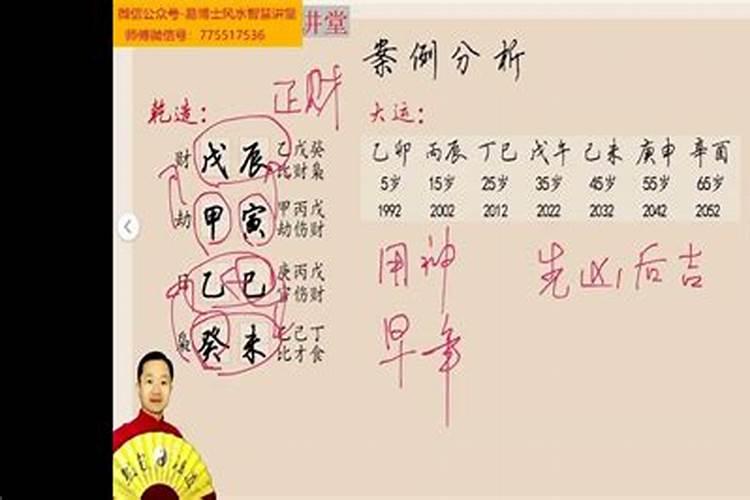 微信公众号-易博士风水智慧讲堂
师傅微信号：775517536
讲堂
案例分析
乾造：
正财
大运：
财 戊 辰 乙戊癸
比财枭
劫 甲 寅 甲丙戊
劫伤财
乙 巳 庚丙戊
官伤财
枭 癸 未 乙己丁
比才食
乙卯 丙辰 丁巳 戊午 己未 庚申 辛酉
5岁 15岁 25岁 35岁 45岁 55岁 65岁
1992 2002 2012 2022 2032 2042 2052
用神 先凶后吉
早年